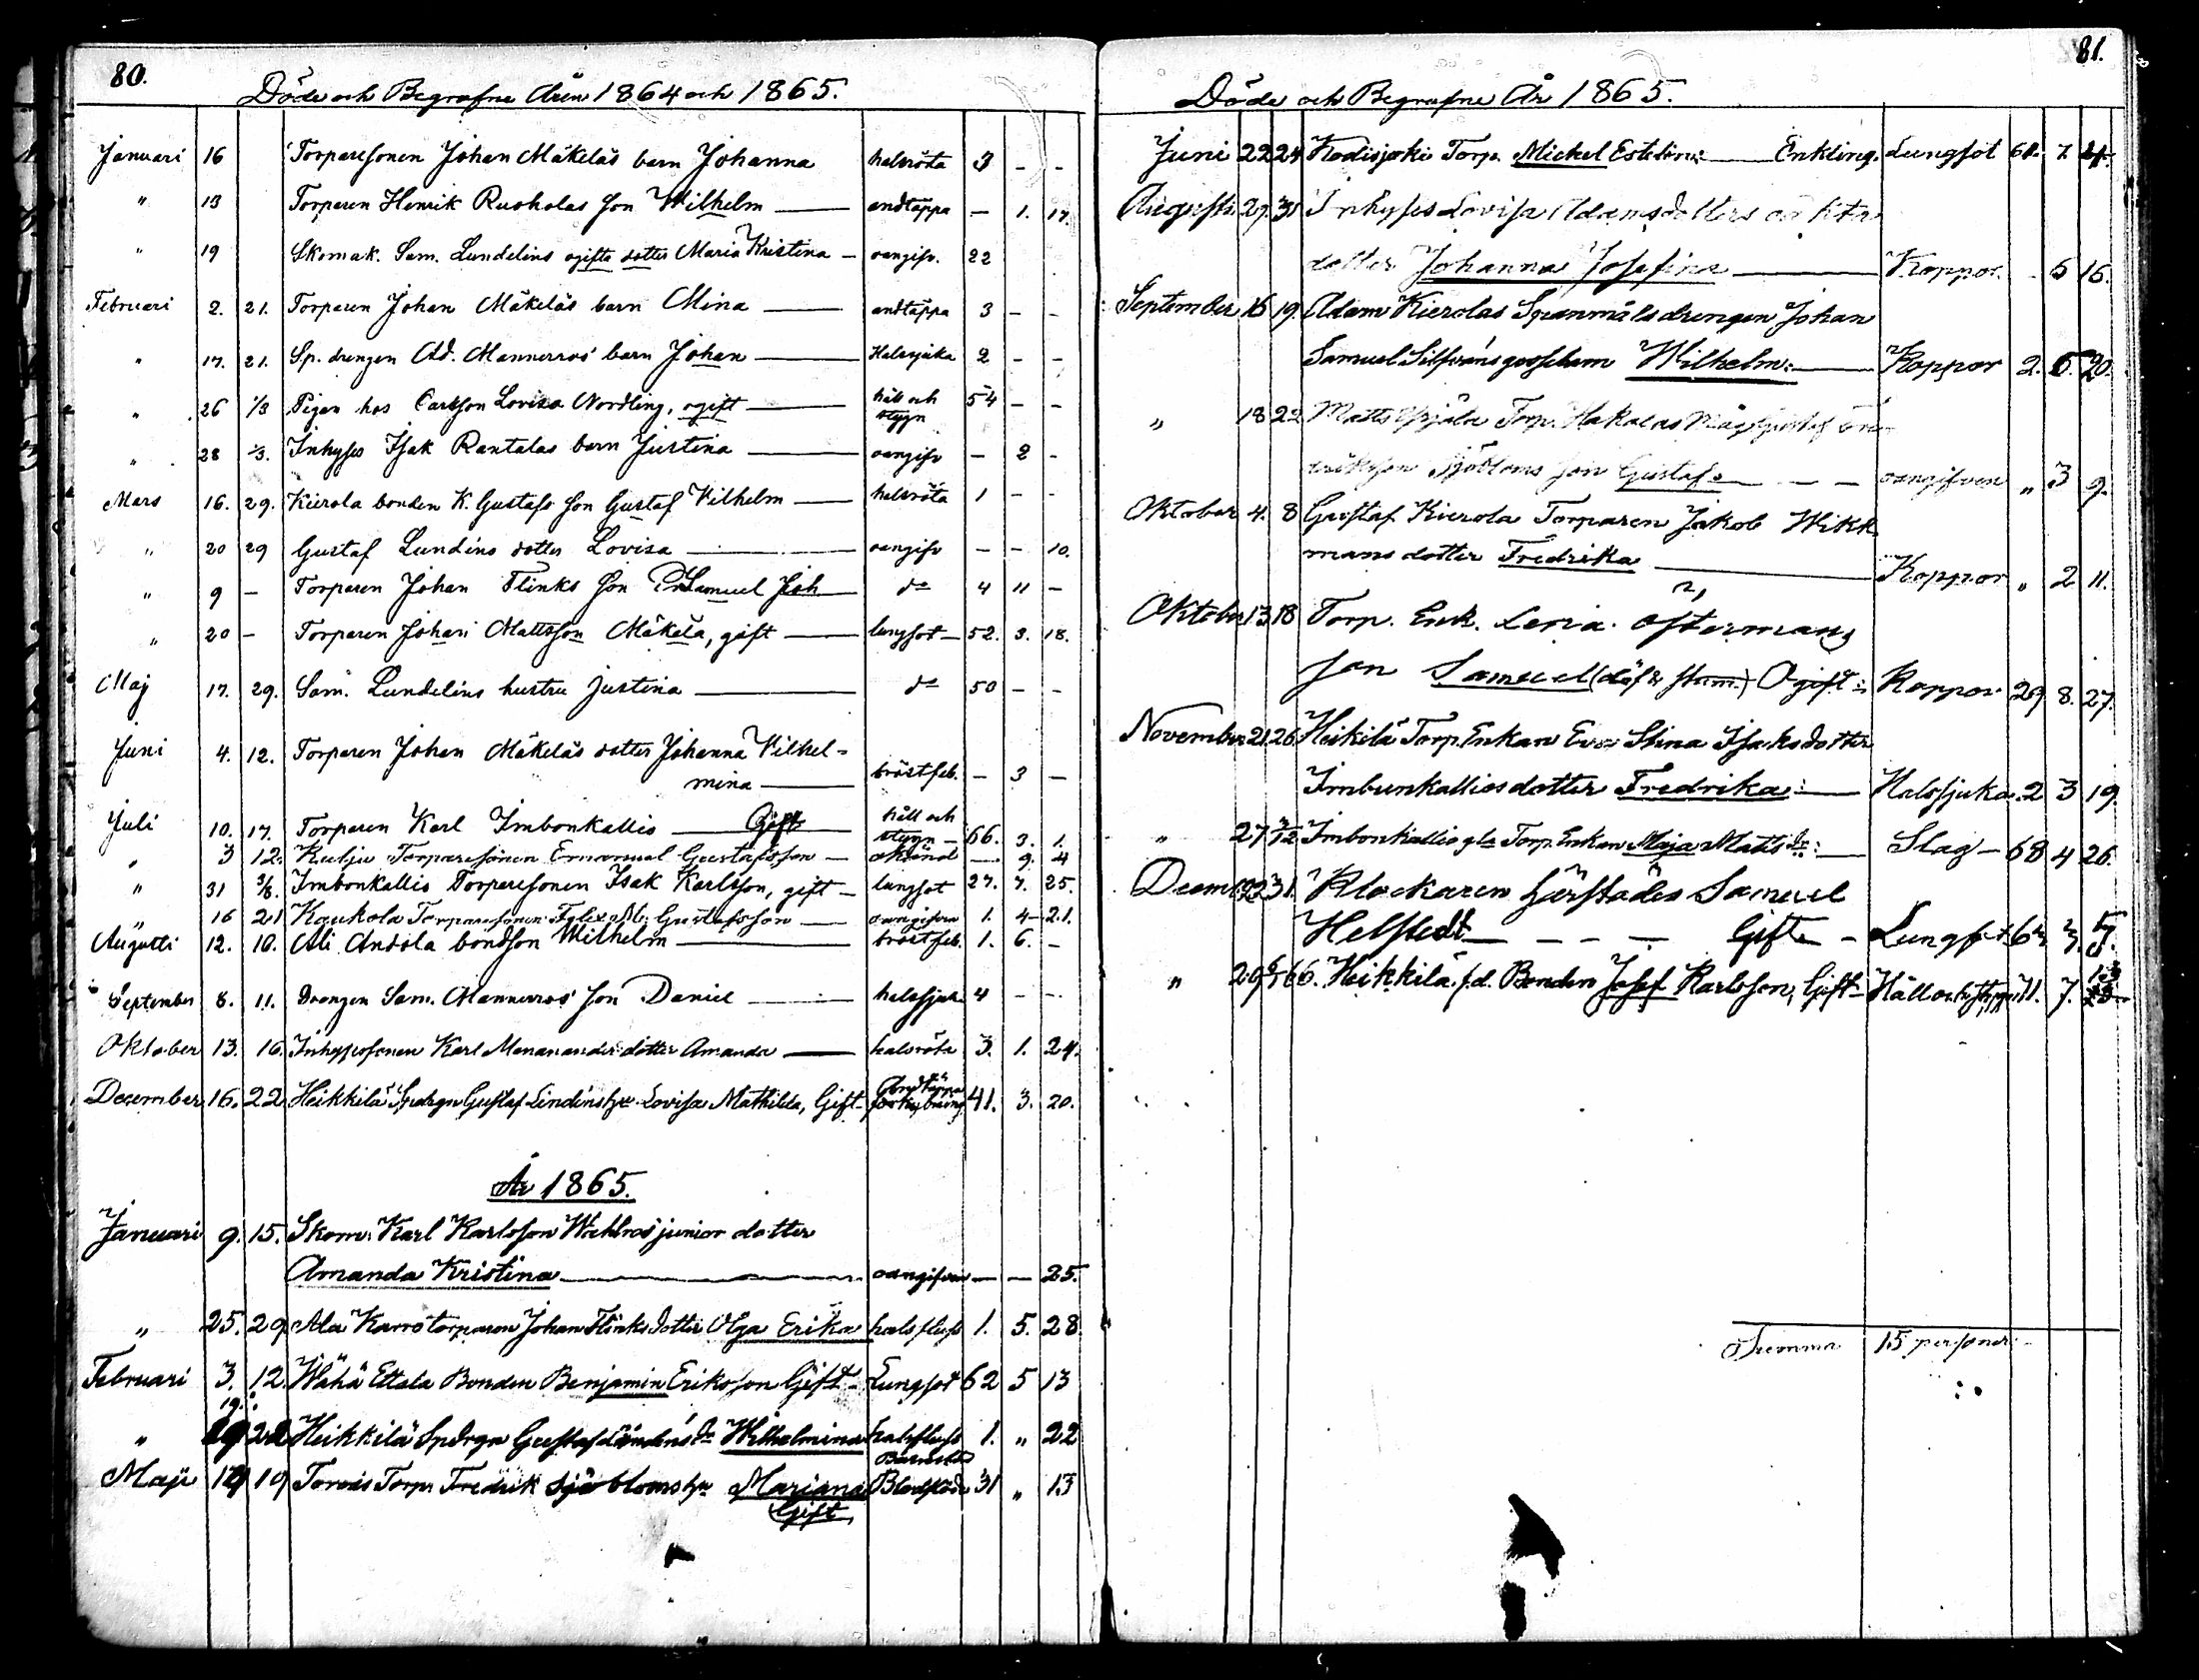 80.
Döde och Begrafne Åren 1864 och 1865.
Januari 16 Torparesonen Johan Mäkeläs barn Johanna halsröta 3 - -
" 13 Torparen Henrik Ruoholas Son Wilhelm andtäppa - 1. 17.
" 19 Skomak. Sam. Lundelins ogifta dotter Maria Kristina oangifv. 22
Februari 2. 21. Torparen Johan Mäkeläs barn Mina andtäppa 3 - -
" 17. 21. Sp. drengen Ad. Mannerros' barn Johan Halssjuka 2 - -
" 26 1/3 Pigan hos Carlsson Lovisa Nordling, ogift håll och stygn 54 - -
" 28 1/3. Inhyses Isak Rantalas barn Justina oangifv - 2 -
Mars 16. 29. Kierola bonden K. Gustafs Son Gustaf Vilhelm halsröta 1 - -
" 20 29 Gustaf Lundins dotter Lovisa oangifv - - 10.
" 9 - Torparen Johan Flinks Son Samuel Joh do 4 11 -
" 20 - Torparen Johan Mattsson Mäkelä, gift lungsot 52. 3. 18.
Maj 17. 29. Sam. Lundelins hustru Justina do 50 - -
Juni 4. 12. Torparen Johan Mäkeläs dotter Johanna Vilhel-
mina bröstfeb. - 3 -
Juli 10. 17. Torparen Karl Imbonkallio Gift håll och stygn 66. 3. 1.
" 3 12. Torparesonen Emanuel Gustafsson okänd - 9. 4
" 31 Imbonkallio Torparesonen Isak Karlsson, gift lungsot 27. 7. 25.
" 16 21 Kaukola Torparesonen Gustafsson oangifven 1. 4 21.
Augusti 12. 10. Ali Andola bondson Wilhelm bröstfeb. 1. 6. -
September 8. 11. Drengen Sam. Mannerros' Son Daniel halssjuk 4 - -
Oktober 13. 16. Inhysesonen Karl Mananders dotter Amanda halsröta 3. 1. 24.
December 16. 22 Heikkilä Spdrgn Gustaf Lindéns hu Lovisa Mathilda, Gift 41. 3. 20.
År 1865.
Januari 9. 15. Skom: Karl Karlsson Wahlros' junior dotter
Amanda Kristina oangifven - - 25.
" 25. 29. Ala Karro torparen Johan Flinks dotter Olga Erika halsfluss 1. 5. 28
Februari 3. 12. Wähä Ettala Bonden Benjamin Eriksson Gift Lungsot 62 5 13
19.
" 19 22 Heikkilä Spdrgn Gustaf Lindéns dr Wilhelmina halsfluss 1. " 22
Maji 19 Torp. Fredrik Sjöbloms hu Mariana Barnsbörd Blodflöde 31 " 13
Gift
81.
Döde och Begrafne År 1865.
Juni 22 24 Kodisjoki Torp. Michel Enkling. Lungsot 61. 7.
Augusti 29. 31 Inhyses Lovisa Adamsdotters oäkta
dotter Johanna Josefina Koppor. - 5 16.
September 16 19. Adam Kierolas Spanmålsdrengen Johan
Samuel Silfvéns gossebarn Wilhelm: Koppor 2. 20.
" 18 22 Matts Torp. Hakalas Måg Gustaf
Sjöbloms son Gustaf oangifven " 3 9.
Oktober 4. 8 Gustaf Kierola Torparen Jakob Wikk
mans dotter Fredrika Koppor " 2 11.
Oktober 13 18 Torp. Enk. Lena Östermans
son Samuel (döf & stum.) Ogift: Koppor 29 8. 27.
November 21 26 Heikilä Torp. Enkan Eva Stina Isaksdotter
Imbunkallios dotter Fredrika: Halssjuka. 2 3 19.
" 27 Imbonkallio gla Torp. Enkan Maja Matsdr: Slag 68 4 26.
Decem 31. Klockaren Samuel
Helstedt Gift Lungsot
" 29 Heikkilä f.d. Bonden Josef Karlsson, Gift Håll och styng 71. 7.
Summa 15 personer